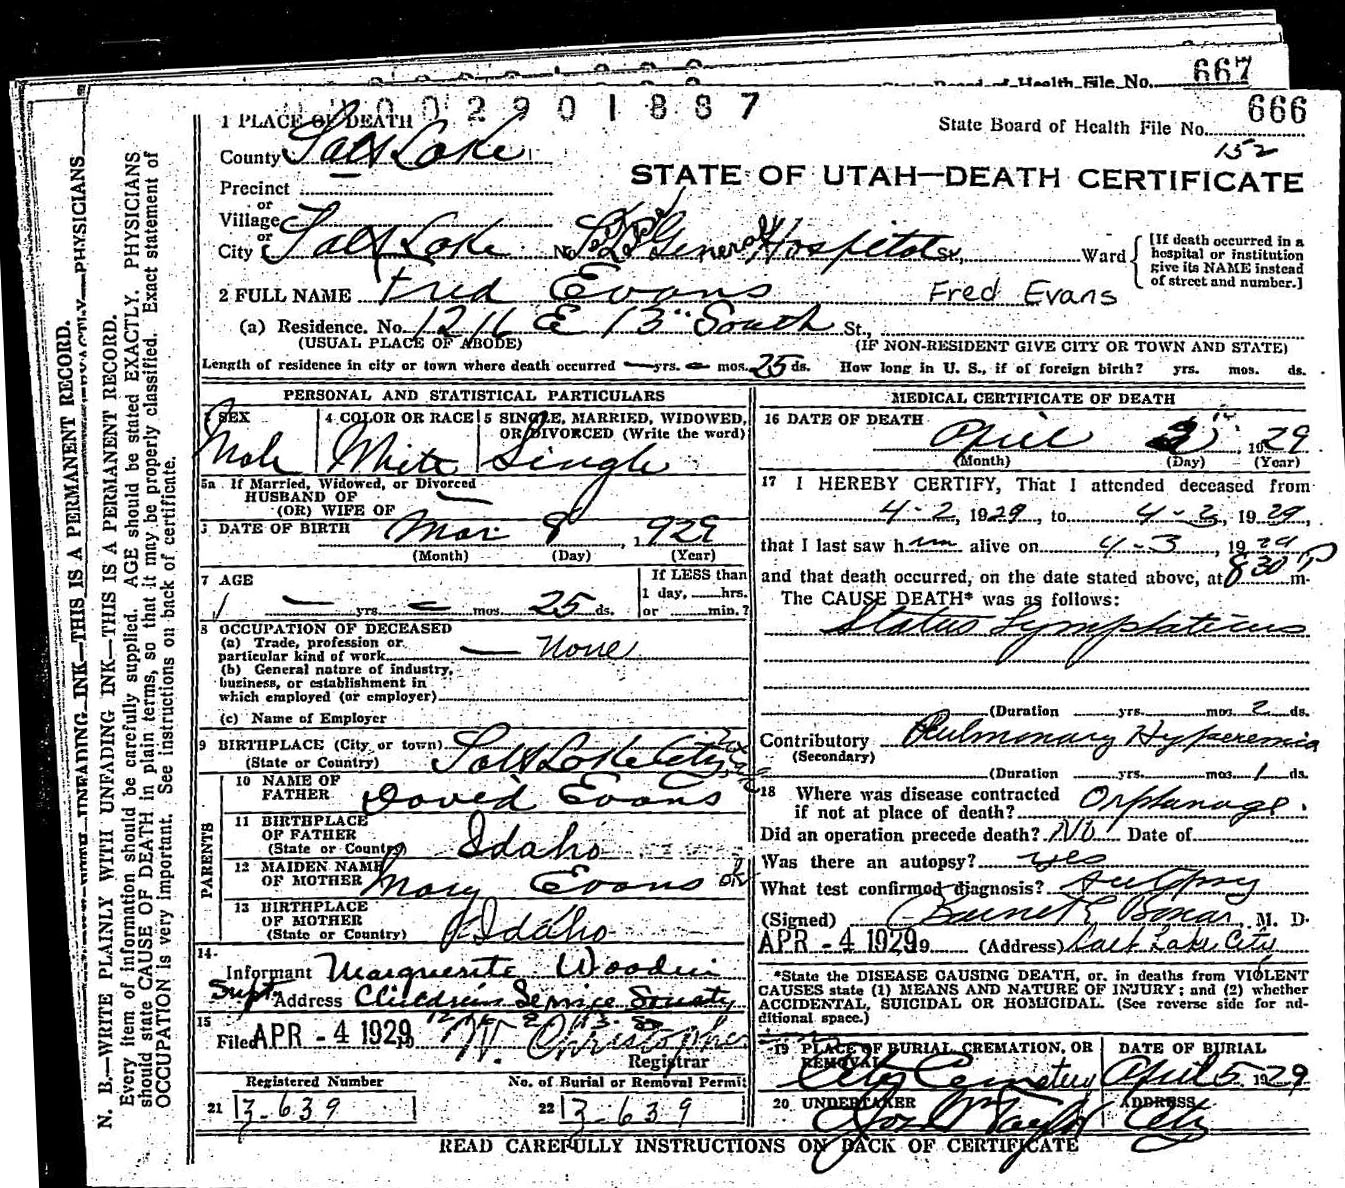 667
State Board of Health File No.
666
0 0 2 9 0 1 8 8 7
152
1 PLACE OF DEATH
County Salt Lake
STATE OF UTAH—DEATH CERTIFICATE
Precinct
or
Village
or
City Salt Lake No. General Hospital St., Ward
[If death occurred in a
hospital or institution
give its NAME instead
of street and number.]
2 FULL NAME Fred Evans Fred Evans
(a) Residence. No. 1216 E 13" South St.,
(USUAL PLACE OF ABODE) (IF NON-RESIDENT GIVE CITY OR TOWN AND STATE)
Length of residence in city or town where death occurred — yrs. — mos. 25 ds. How long in U. S., if of foreign birth? yrs. mos. ds.
PERSONAL AND STATISTICAL PARTICULARS
3 SEX 4 COLOR OR RACE 5 SINGLE, MARRIED, WIDOWED,
OR DIVORCED (Write the word)
Male White Single
5a If Married, Widowed, or Divorced
HUSBAND OF
(OR) WIFE OF —
6 DATE OF BIRTH Mar 9, 1929
(Month) (Day) (Year)
7 AGE If LESS than
1 day, hrs.
— yrs. — mos. 25 ds. or min.?
8 OCCUPATION OF DECEASED
(a) Trade, profession or
particular kind of work — None
(b) General nature of industry,
business, or establishment in
which employed (or employer)
(c) Name of Employer
9 BIRTHPLACE (City or town) Salt Lake City
(State or Country)
PARENTS
10 NAME OF
FATHER David Evans
11 BIRTHPLACE
OF FATHER
(State or Country) Idaho
12 MAIDEN NAME
OF MOTHER Mary Evans
13 BIRTHPLACE
OF MOTHER
(State or Country) Idaho
14
Informant Marguerite Woodin
Supt. Address Childrens Service Society
15
Filed APR - 4 1929 W. Christopher
Registrar
Registered Number No. of Burial or Removal Permit
21 3-639 22 3-639
MEDICAL CERTIFICATE OF DEATH
16 DATE OF DEATH
April 3, 1929
(Month) (Day) (Year)
17 I HEREBY CERTIFY, That I attended deceased from
4-2, 1929, to 4-3, 1929,
that I last saw him alive on 4-3, 1929
and that death occurred, on the date stated above, at 830 P m.
The CAUSE DEATH* was as follows:
Status Lymphaticus
(Duration yrs. mos. 2 ds.
Contributory Pulmonary Hyperemia
(Secondary)
(Duration yrs. mos. 1 ds.
18 Where was disease contracted
if not at place of death? Orphanage.
Did an operation precede death? No Date of
Was there an autopsy? yes
What test confirmed diagnosis? Autopsy
(Signed) Barnet E Bonar, M. D.
APR - 4 1929 9 (Address) Salt Lake City
*State the DISEASE CAUSING DEATH, or, in deaths from VIOLENT
CAUSES state (1) MEANS AND NATURE OF INJURY; and (2) whether
ACCIDENTAL, SUICIDAL OR HOMICIDAL. (See reverse side for ad-
ditional space.)
19 PLACE OF BURIAL, CREMATION, OR
REMOVAL DATE OF BURIAL
City Cemetery April 5 1929
20 UNDERTAKER ADDRESS
Jos. Wm Taylor City
READ CAREFULLY INSTRUCTIONS ON BACK OF CERTIFICATE
N. B.—WRITE PLAINLY WITH UNFADING INK—THIS IS A PERMANENT RECORD.
Every item of information should be carefully supplied. AGE should be stated EXACTLY. PHYSICIANS
should state CAUSE OF DEATH in plain terms, so that it may be properly classified. Exact statement of
OCCUPATION is very important. See instructions on back of certificate.